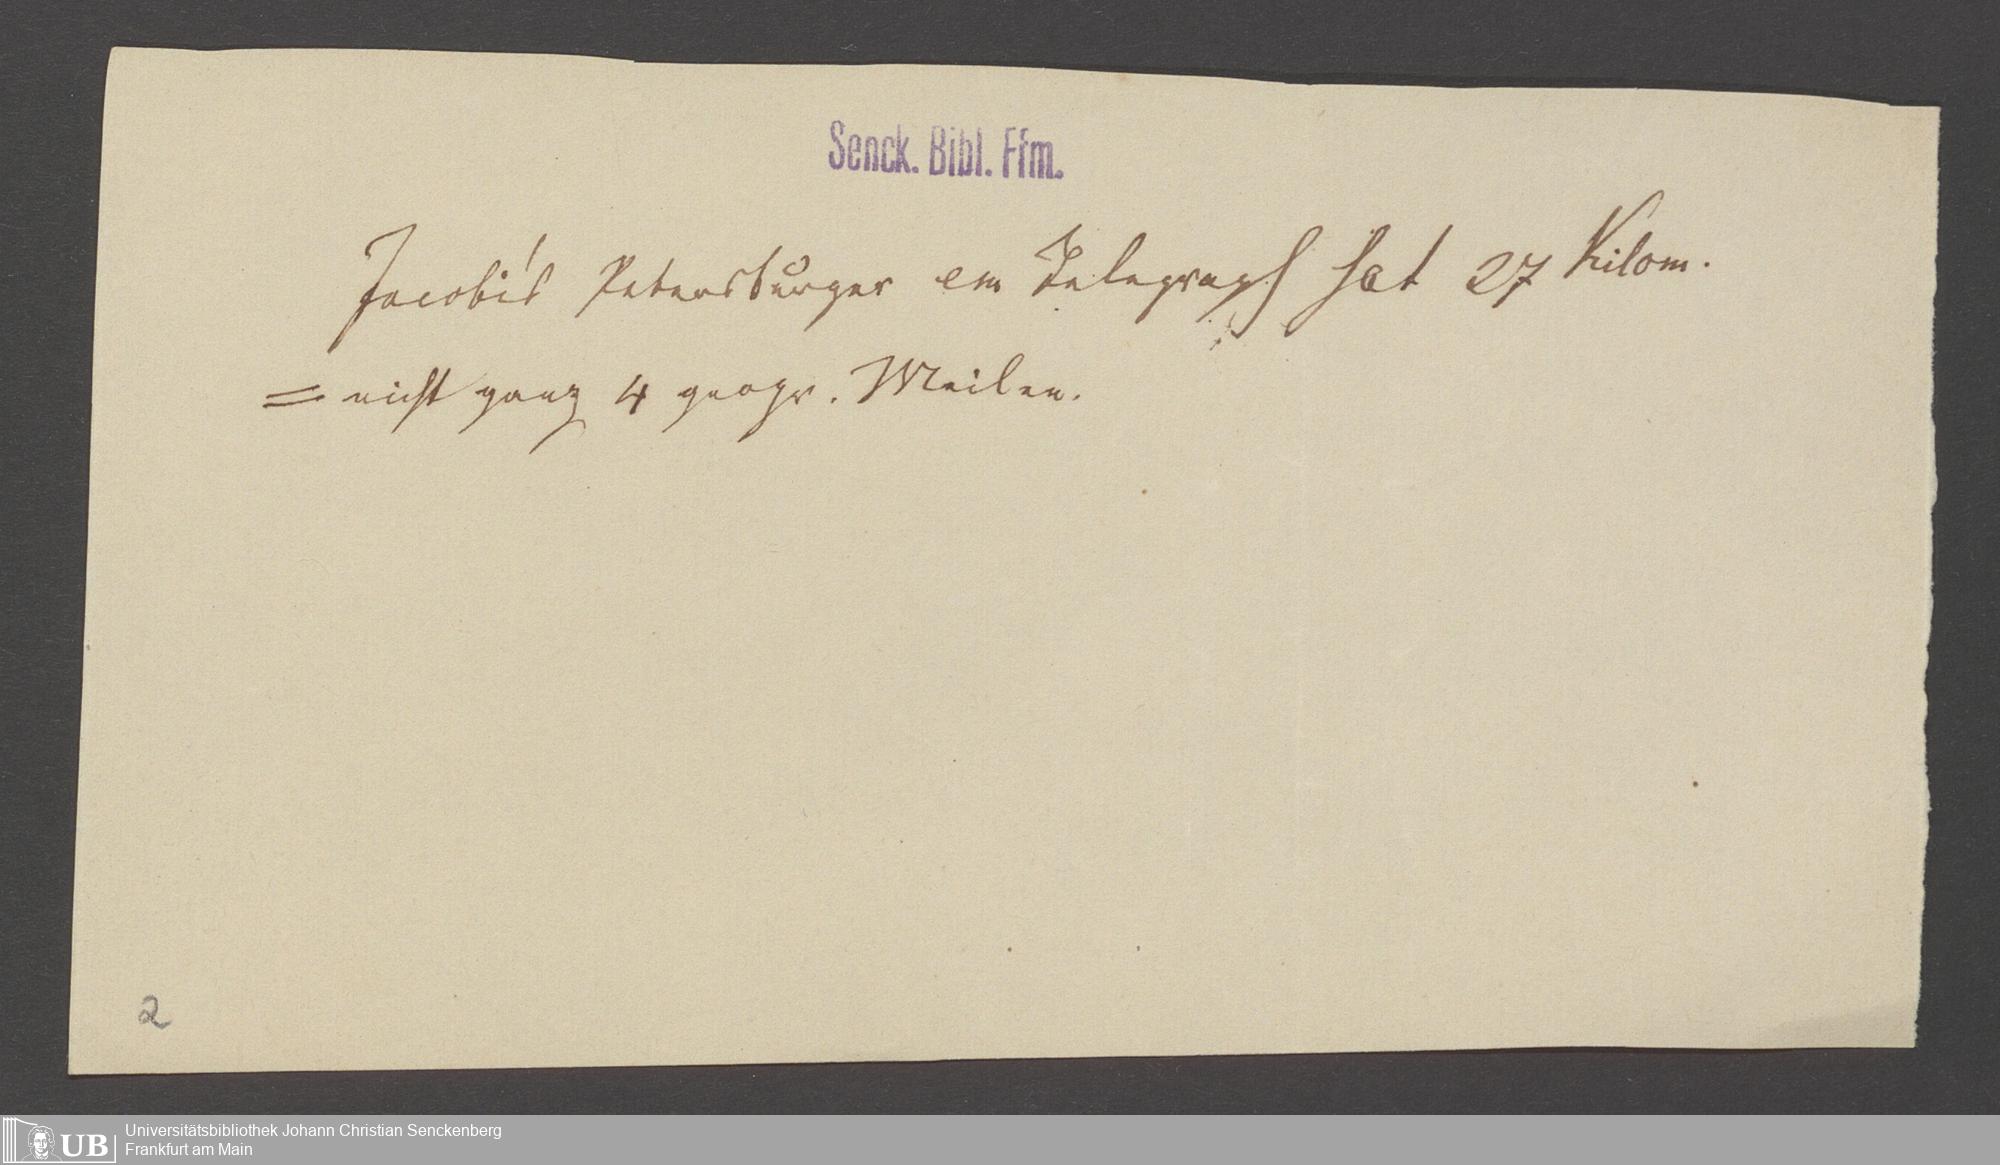 Senck. Bibl. Ffm.
Jacobi's Petersburger em Telegraph hat 27 Kilom.
= nicht ganz 4 geogr. Meilen.
2
UB
Universitätsbibliothek Johann Christian Senckenberg
Frankfurt am Main